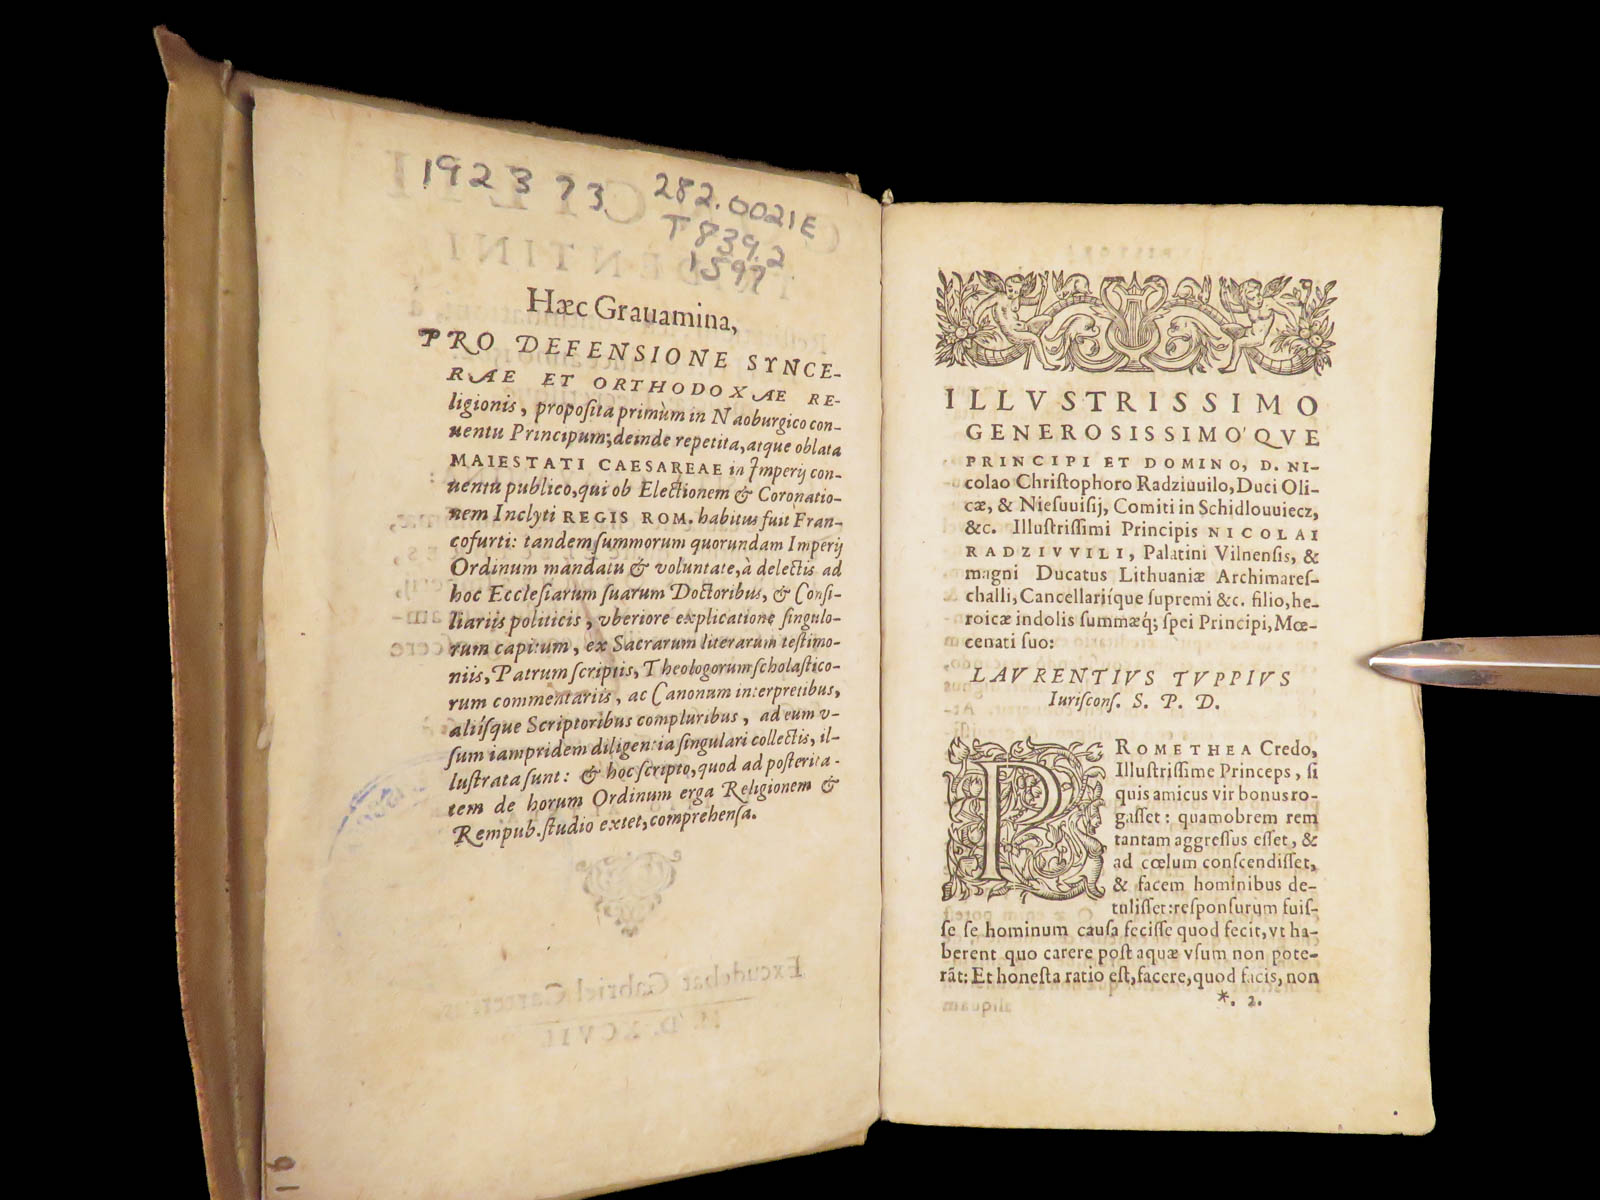 1923 73 282.0021E
T839.2
1597
Hæc Grauamina,
PRO DEFENSIONE SYNCE-
RAE ET ORTHODOXAE RE-
ligionis, propoſita primùm in Naoburgico con-
uentu Principum; deinde repetita, atque oblata
MAIESTATI CAESAREAE in Imperij con-
uentu publico, qui ob Electionem & Coronatio-
nem Inclyti REGIS ROM. habitus fuit Fran-
cofurti: tandem ſummorum quorundam Imperij
Ordinum mandatu & voluntate, à delectis ad
hoc Eccleſiarum ſuarum Doctoribus, & Conſi-
liariis politicis, vberiore explicatione ſingulo-
rum capitum, ex Sacrarum literarum teſtimo-
niis, Patrum ſcriptis, Theologorum ſcholaſtico-
rum commentariis, ac Canonum interpretibus,
aliíſque Scriptoribus compluribus, ad eum v-
ſum iampridem diligentia ſingulari collectis, il-
luſtrata ſunt: & hoc ſcripto, quod ad poſterita-
tem de horum Ordinum erga Religionem &
Rempub. ſtudio extet, comprehenſa.
ILLVSTRISSIMO
GENEROSISSIMO'QVE
PRINCIPI ET DOMINO, D. NI-
colao Chriſtophoro Radziuuilo, Duci Oli-
cæ, & Nieſuuiſij, Comiti in Schidlouuiecz,
&c. Illuſtriſſimi Principis NICOLAI
RADZIVVILI, Palatini Vilnenſis, &
magni Ducatus Lithuaniæ Archimareſ-
challi, Cancellariíque ſupremi &c. filio, he-
roicæ indolis ſummæq́; ſpei Principi, Mœ-
cenati ſuo:
LAVRENTIVS TVPPIVS
Iuriſconſ. S. P. D.
PROMETHEA Credo,
Illuſtriſſime Princeps, ſi
quis amicus vir bonus ro-
gaſſet: quamobrem rem
tantam aggreſſus eſſet, &
ad cœlum conſcendiſſet,
& facem hominibus de-
tuliſſet: reſponſurum fuiſ-
ſe ſe hominum cauſa feciſſe quod fecit, vt ha-
berent quo carere poſt aquæ vſum non pote-
rāt: Et honeſta ratio eſt, facere, quod facis, non
*. 2.